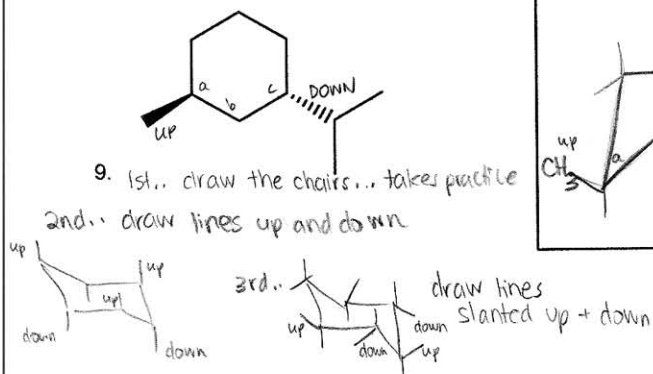 a
b
c
DOWN
up
up
CH3
a
9. 1st.. draw the chairs... takes practice
2nd.. draw lines up and down
up
up
up
down
down
3rd..
draw lines
slanted up + down
up
down
down
up